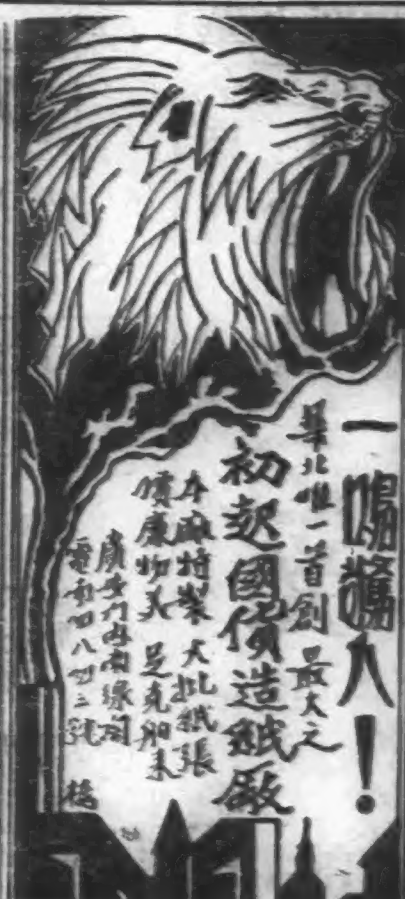 一鳴驚人！
華北唯一首創最大之
初起國貨造紙廠
本廠特製大批紙張
價廉物美 足克舶来
廣安門內南線閣
電南四八四三號